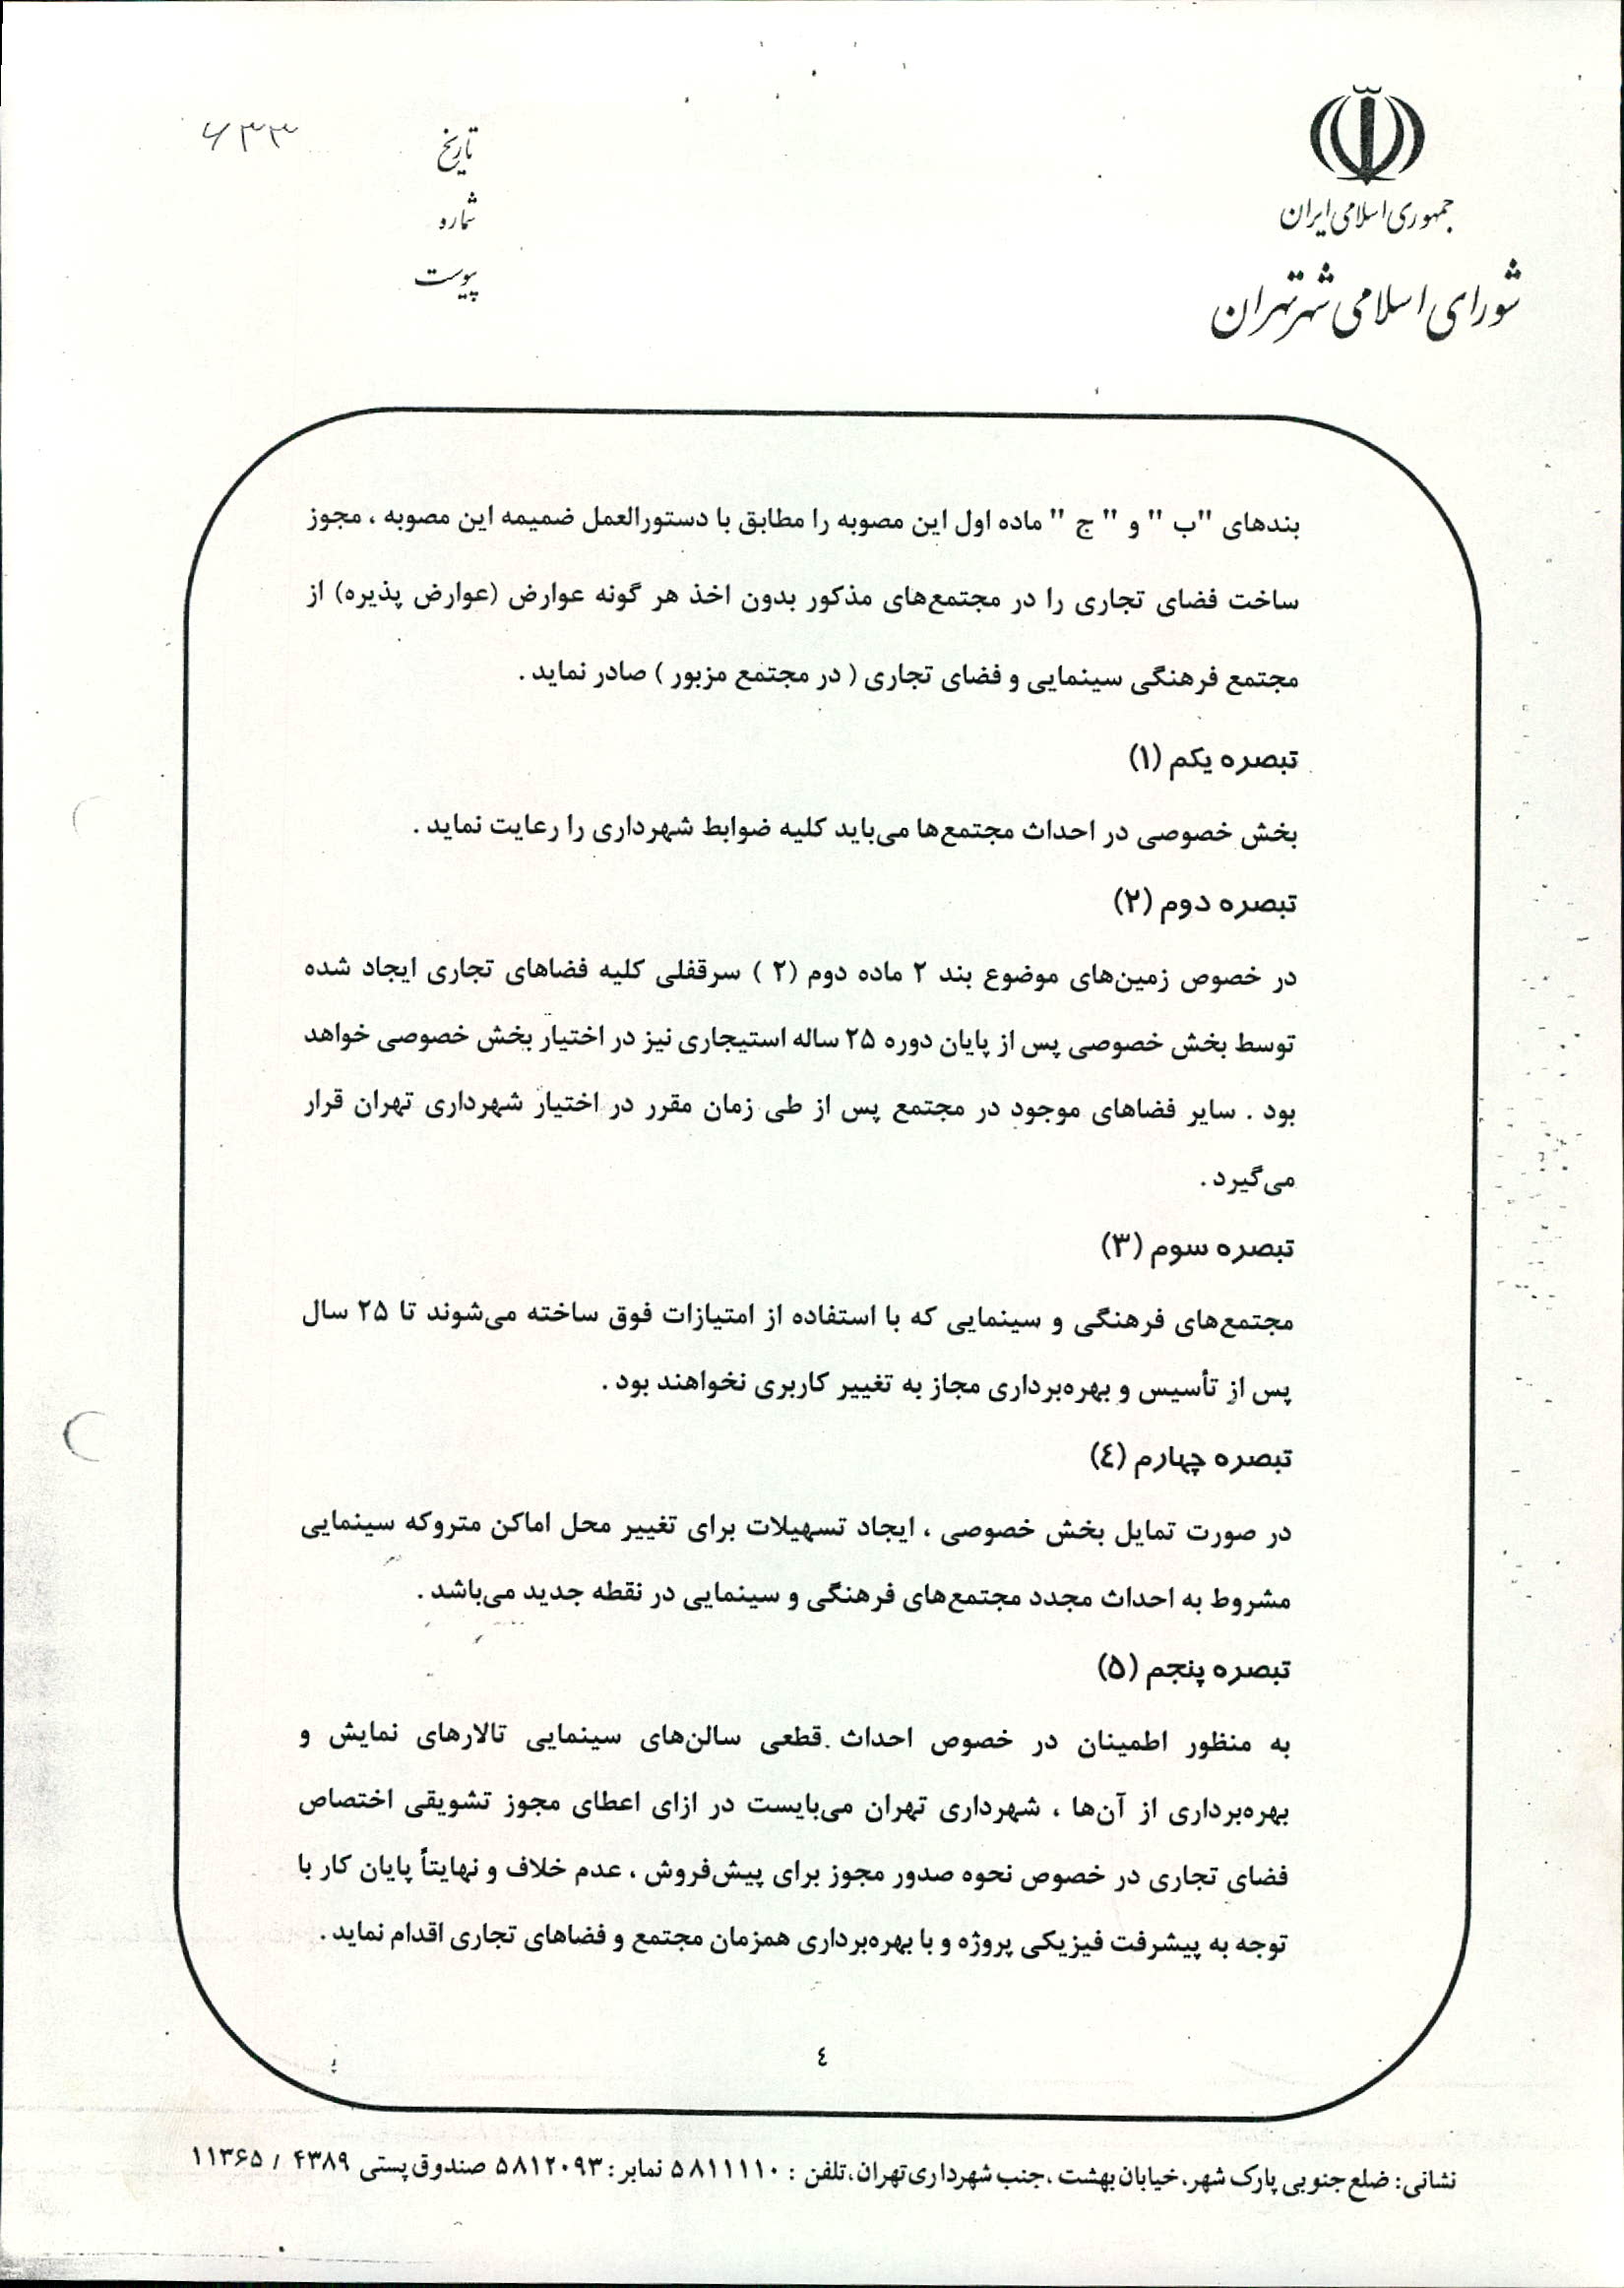 جمهوری اسلامی ایران
شورای اسلامی شهر تهران
تاریخ
شماره
پیوست
۶۳۳
بندهای "ب " و " ج " ماده اول این مصوبه را مطابق با دستورالعمل ضمیمه این مصوبه ، مجوز
ساخت فضای تجاری را در مجتمع‌های مذکور بدون اخذ هر گونه عوارض (عوارض پذیره) از
مجتمع فرهنگی سینمایی و فضای تجاری ( در مجتمع مزبور ) صادر نماید .
تبصره یکم (۱)
بخش خصوصی در احداث مجتمع‌ها می‌باید کلیه ضوابط شهرداری را رعایت نماید .
تبصره دوم (۲)
در خصوص زمین‌های موضوع بند ۲ ماده دوم (۲ ) سرقفلی کلیه فضاهای تجاری ایجاد شده
توسط بخش خصوصی پس از پایان دوره ۲۵ ساله استیجاری نیز در اختیار بخش خصوصی خواهد
بود . سایر فضاهای موجود در مجتمع پس از طی زمان مقرر در اختیار شهرداری تهران قرار
می‌گیرد .
تبصره سوم (۳)
مجتمع‌های فرهنگی و سینمایی که با استفاده از امتیازات فوق ساخته می‌شوند تا ۲۵ سال
پس از تأسیس و بهره‌برداری مجاز به تغییر کاربری نخواهند بود .
تبصره چهارم (٤)
در صورت تمایل بخش خصوصی ، ایجاد تسهیلات برای تغییر محل اماکن متروکه سینمایی
مشروط به احداث مجدد مجتمع‌های فرهنگی و سینمایی در نقطه جدید می‌باشد .
تبصره پنجم (۵)
به منظور اطمینان در خصوص احداث قطعی سالن‌های سینمایی تالارهای نمایش و
بهره‌برداری از آن‌ها ، شهرداری تهران می‌بایست در ازای اعطای مجوز تشویقی اختصاص
فضای تجاری در خصوص نحوه صدور مجوز برای پیش‌فروش ، عدم خلاف و نهایتاً پایان کار با
توجه به پیشرفت فیزیکی پروژه و با بهره‌برداری همزمان مجتمع و فضاهای تجاری اقدام نماید .
٤
نشانی: ضلع جنوبی پارک شهر، خیابان بهشت ،جنب شهرداری تهران،تلفن : ۵۸۱۱۱۱۰ نمابر: ۵۸۱۲۰۹۳ صندوق پستی ۴۳۸۹ / ۱۱۳۶۵